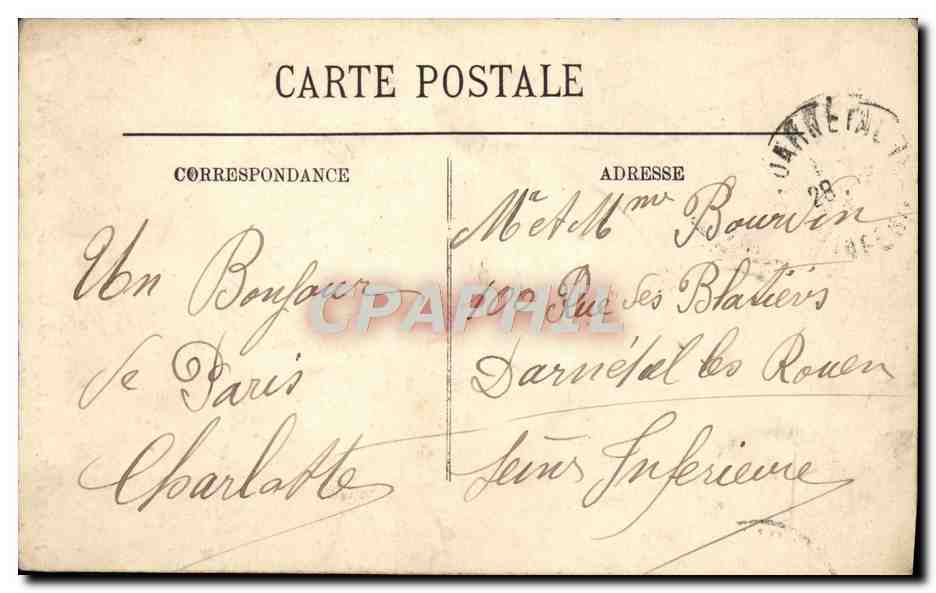 CARTE POSTALE
CORRESPONDANCE
ADRESSE
Un Bonjour
de Paris
Charlotte
Mr et Mme Bourdin
100 Rue des Blatiers
Darnétal les Rouen
Seine Inferieure
DARNETAL
28
CPAPHIL